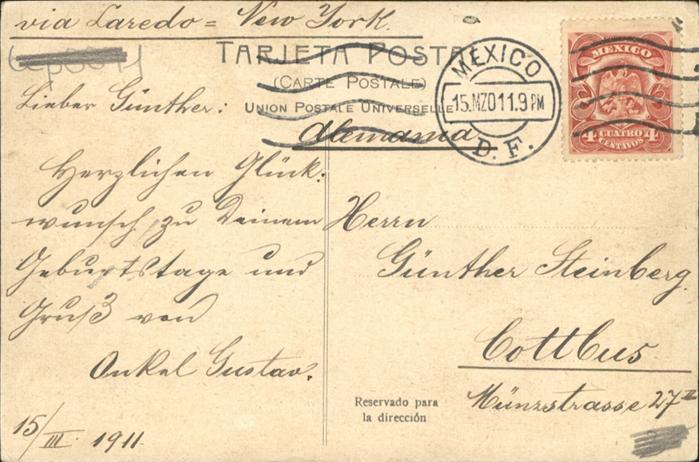 via Laredo = New York.
TARJETA POSTAL
(CARTE POSTALE)
UNION POSTALE UNIVERSELLE
Alemania
MEXICO
15.MZO11.9PM
D. F.
MEXICO
4 CUATRO 4
CENTAVOS
Lieber Günther:
Herzlichen Glück-
wunsch, zu Deinem
Geburtstage und
Gruß von
Onkel Gustav.
15/III. 1911.
Herrn
Günther Steinberg.
Cottbus
Münzstrasse 27 II
Reservado para
la dirección